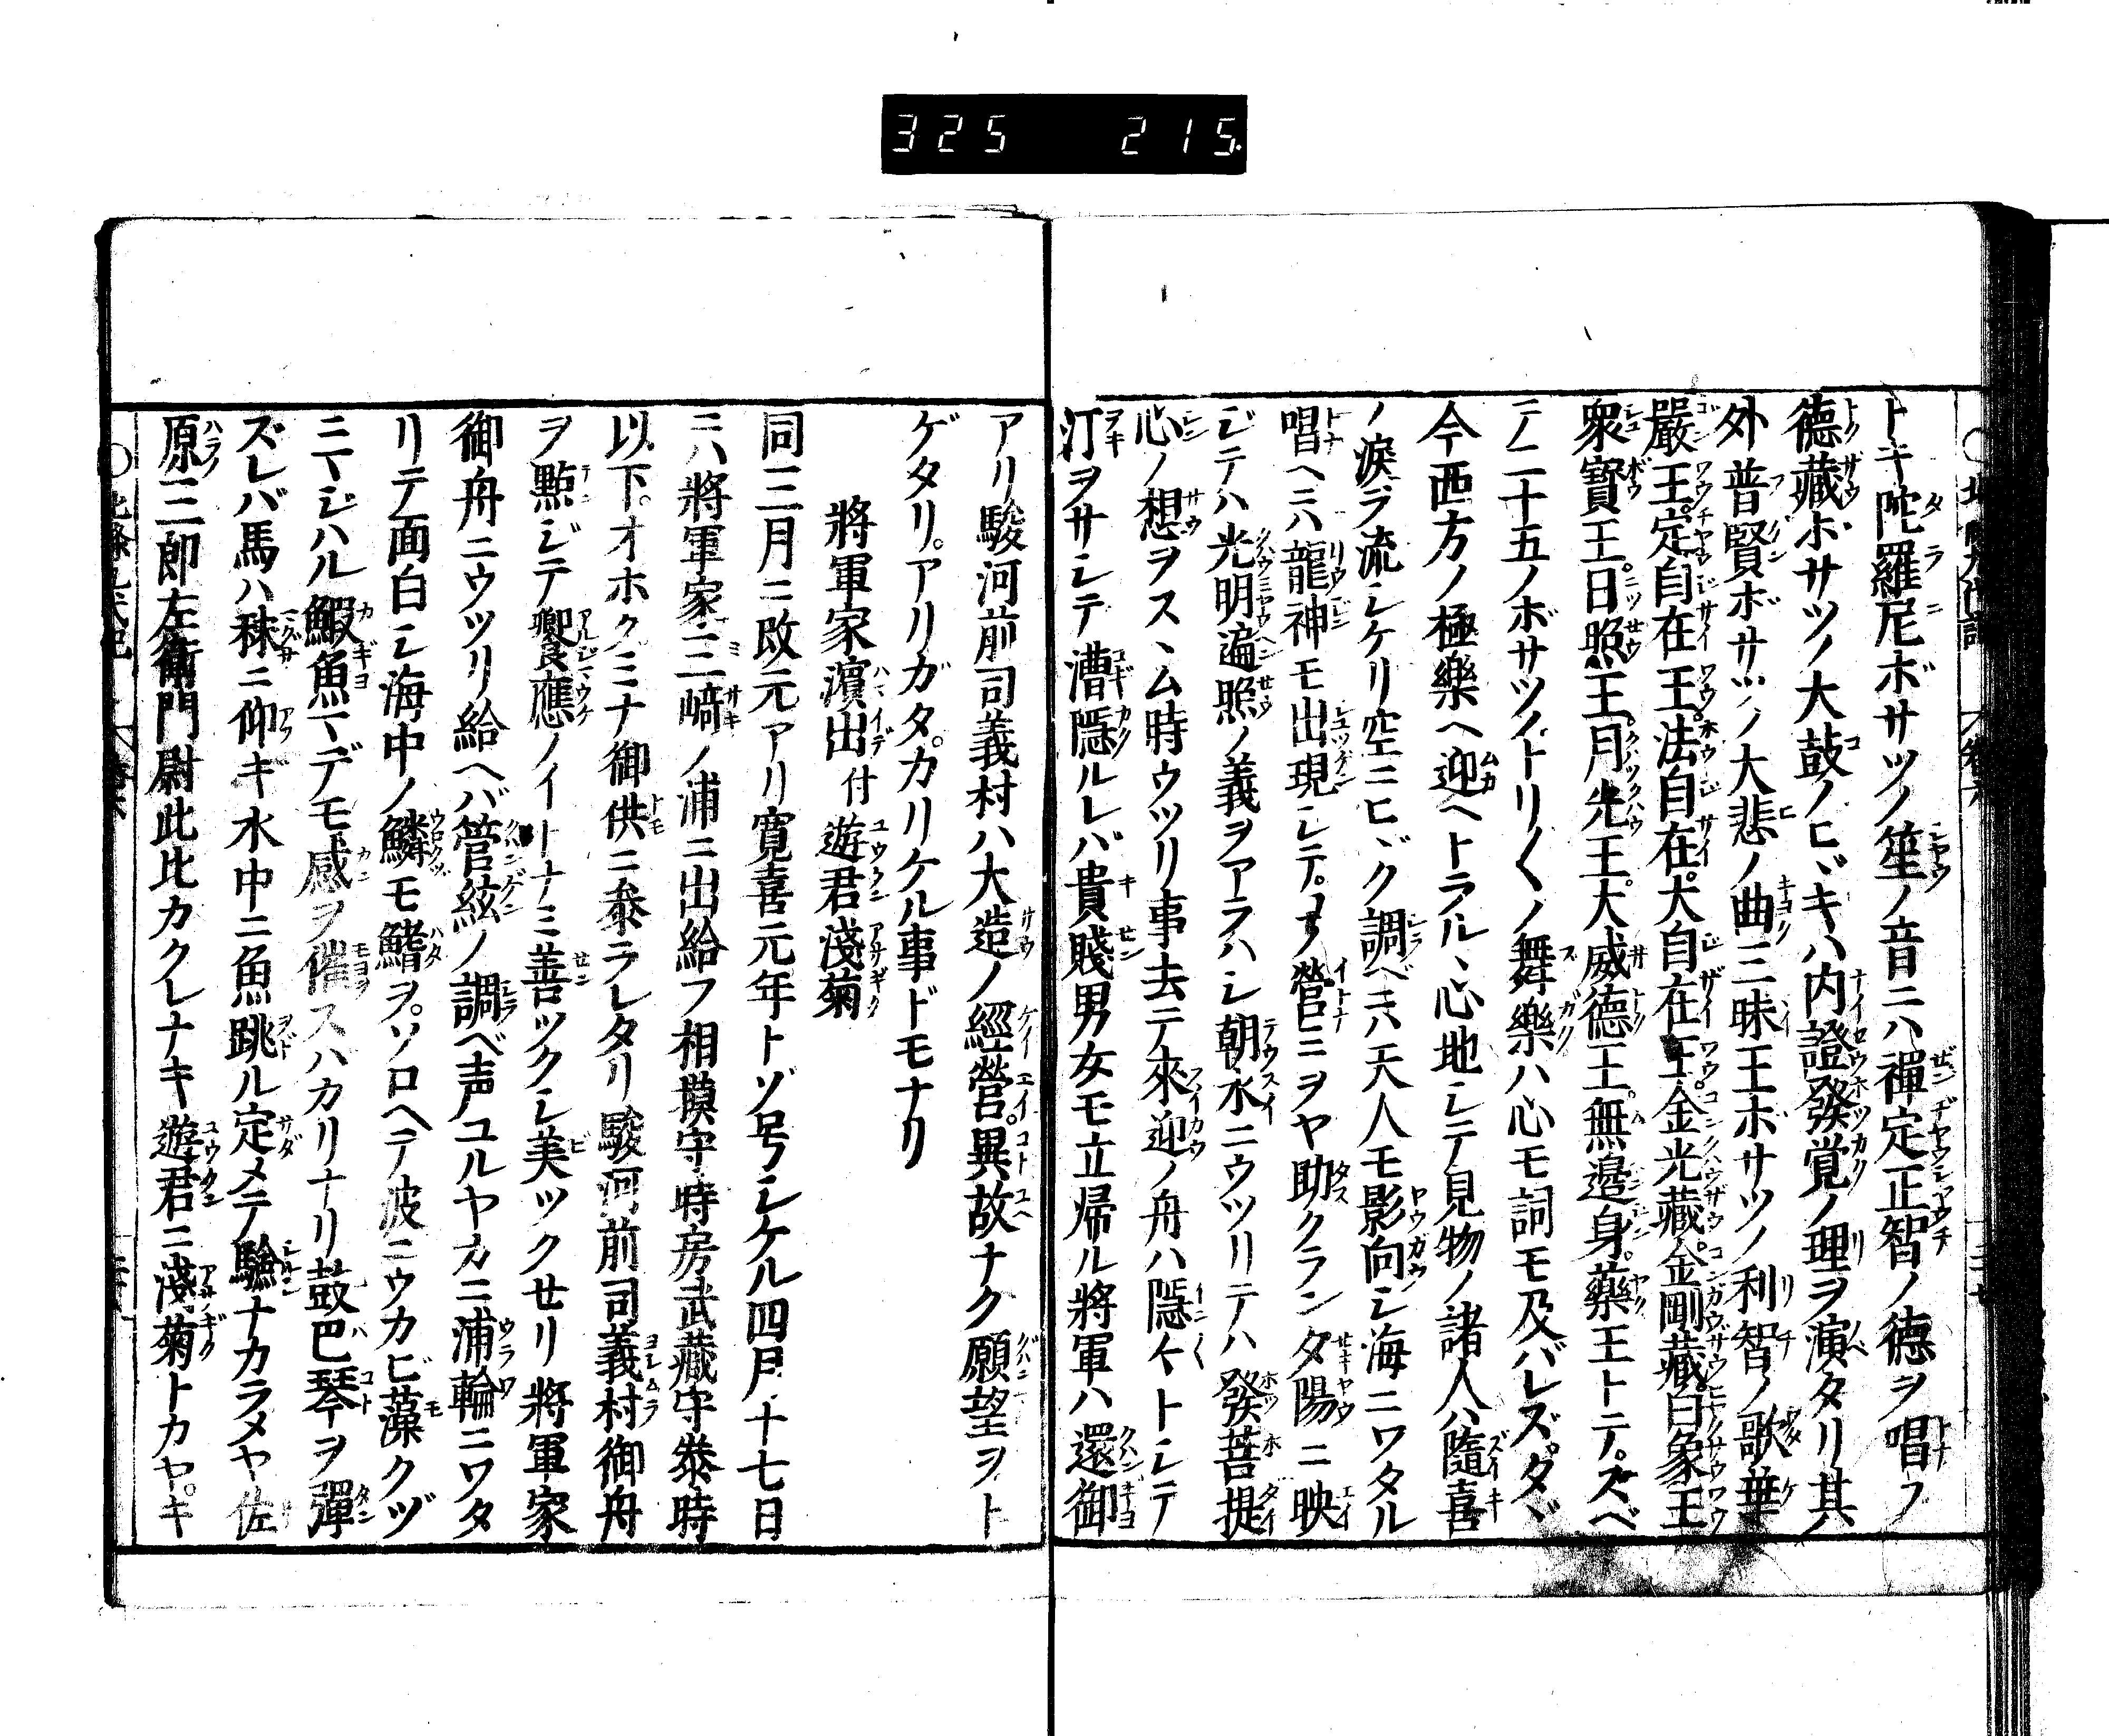 325 215
トキ陀羅尼ボサツノ笙ノ音ニハ禪定正智ノ德ヲ唱フ
德藏ボサツノ大鼓ノヒヾキハ内證發覚ノ理ヲ演タリ其
外普賢ボサツノ大悲ノ曲三昧王ボサツノ利智ノ歌華
嚴王定自在王法自在大自在王金光藏金剛藏白象王
衆寳王日照王月光王大威德王無邉身藥王トテスベ
テノ二十五ノボサツノトリ〱ノ舞樂ハ心モ詞モ及バレズタヾ
今西方ノ極樂ヘ迎ヘトラルヽ心地シテ見物ノ諸人ハ隨喜
ノ淚ヲ流シケリ空ニヒヾク調ベニハ天人モ影向シ海ニワタル
唱ヘニハ龍神モ出現シテノ營ミヲヤ助クラン夕陽ニ映
ジテハ光明遍照ノ義ヲアラハシ朝水ニウツリテハ發菩提
心ノ想ヲスヽム時ウツリ事去テ來迎ノ舟ハ隱々トシテ
汀ヲサシテ漕隱ルレバ貴賤男女モ立帰ル將軍ハ還御
アリ駿河前司義村ハ大造ノ經營異故ナク願望ヲト
ゲタリアリガタカリケル事ドモナリ
將軍家濵出付遊君淺菊
同三月ニ改元アリ寛喜元年トゾ号シケル四月十七日
ニハ將軍家三﨑ノ浦ニ出給フ相摸守時房武藏守泰時
以下オホクミナ御供ニ泰ラレタリ駿河前司義村御舟
ヲ點ジテ饗應ノイトナミ善ツクシ美ツクせリ將軍家
御舟ニウツリ給ヘバ管絃ノ調ベ声ユルヤカニ浦輪ニワタ
リテ面白シ海中ノ鱗モ鰭ヲソロヘテ波ニウカビ藻クヅ
ニマジハル鰕魚マデモ感ヲ催スハカリナリ鼓巴琴ヲ彈
ズレバ馬ハ秣ニ仰ギ水中ニ魚跳ル定メテ驗ナカラメヤ佐
原三郎左衞門尉此比カクレナキ遊君ニ淺菊トカヤキ